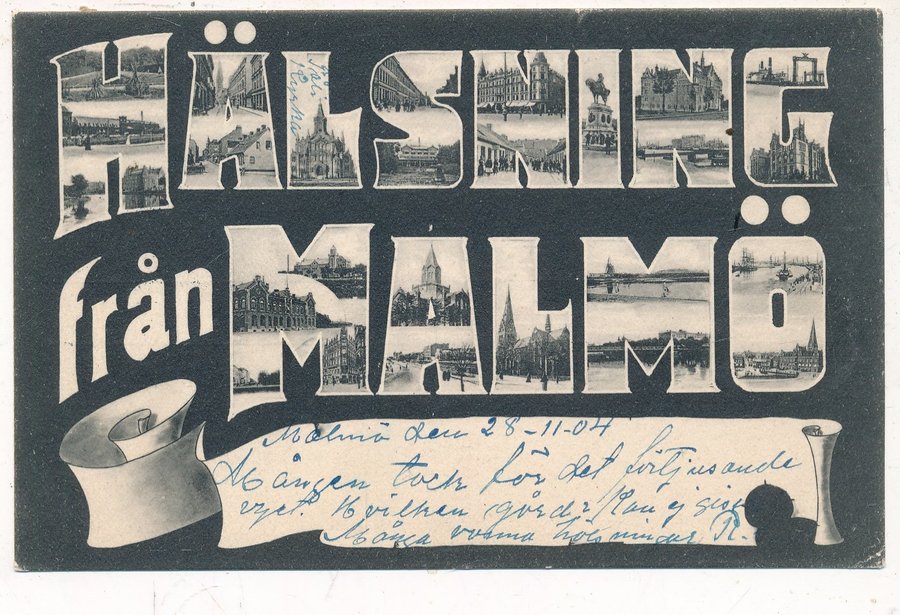 HÄLSNING
från MALMÖ
Malmö den 28-11-04
Mången tack för det förtjusande
vyet. Hvilken gör det / kan ej
Många varma hälsningar R.